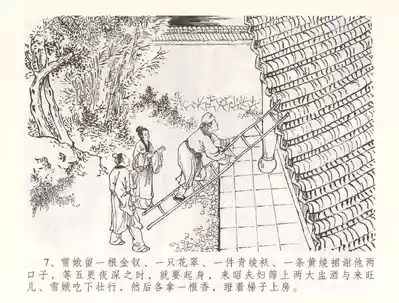 7、雪娥留一根金钗、一只花翠、一件青绫袄、一条黄绫裙谢他两
口子，等五更夜深之时，就要起身，来昭夫妇筛上两大出酒与来旺
儿、雪娥吃下壮行，然后各拿一根香，蹬着梯子上房。